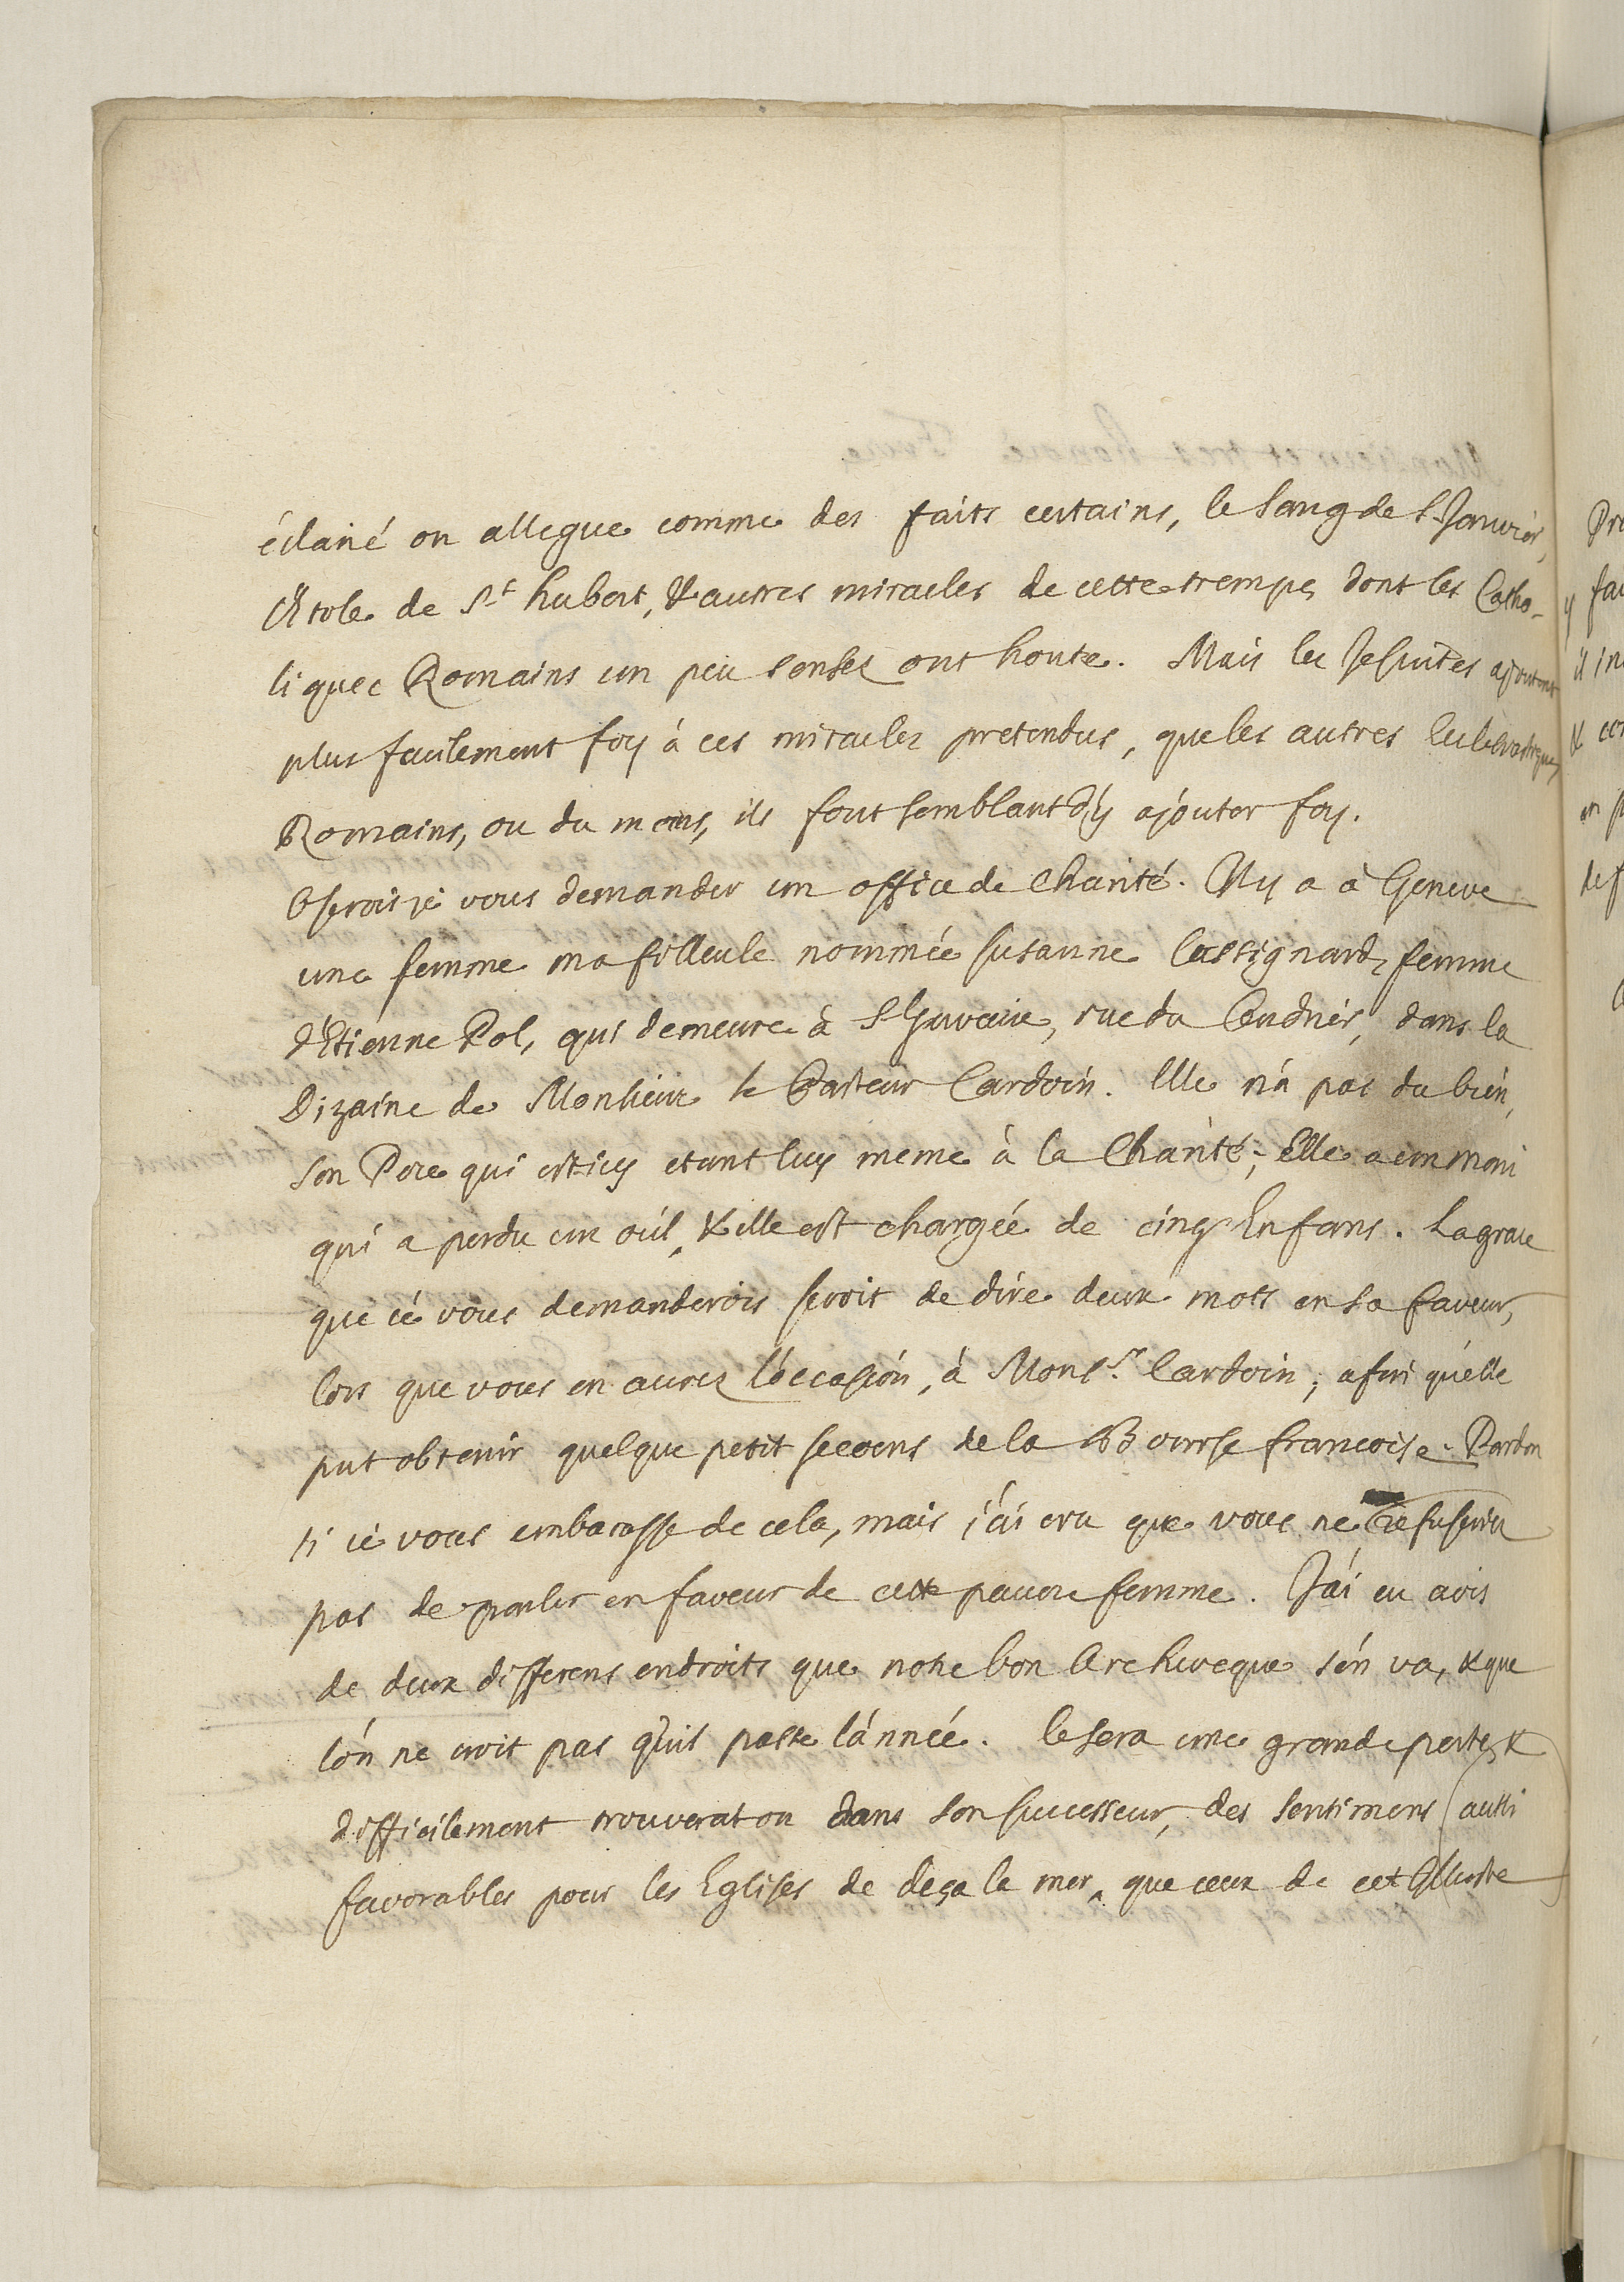 éclairé on allegue comme des faits certains, le sang de S. Janvier,
l'Etole de S.t hubert, & autres miracles de cette trempe, dont les Catho-
liques Romains un peu sensez ont honte. Mais les Jesuites ajoutent
plus facilement foy à ces miracles pretendus, que les autres Ecclesiastiques
Romains, ou du moins, ils font semblant d'y ajouter foy.
Oserois je vous demander un office de Charité. Il y a à Geneve
une femme ma filleule nommée Susanne Castignard, femme
d'Etienne Pol, qui demeure à S. Gervaie, rue du Cendrier, dans la
Dizaine de Monsieur le Pasteur Cardoin. Elle n'a pas du bien,
son Pere qui est icy etant luy meme à la Charité; Elle a un mari
qui a perdu un oeil, & elle est chargée de cinq Enfans. La grace
que ie vous demanderois seroit de dire deux mots en sa faveur,
lors que vous en aurez l'occasion, à Mons.r Cardoin; afin qu'elle
put obtenir quelque petit secours de la Bourse francoise. Pardon
si ie vous embarasse de cela, mais j'ai cru que vous ne refuseriez
pas de parler en faveur de cette pauvre femme. J'ai eu avis
de deux differens endroits que notre bon Archeveque s'en va, & que
l'on ne croit pas qu'il passe l'année. Ce sera une grande perte, &
difficilement trouverat on dans son successeur, des sentimens aussi
favorables pour les Eglises de deça la mer, que ceux de cet Illustre